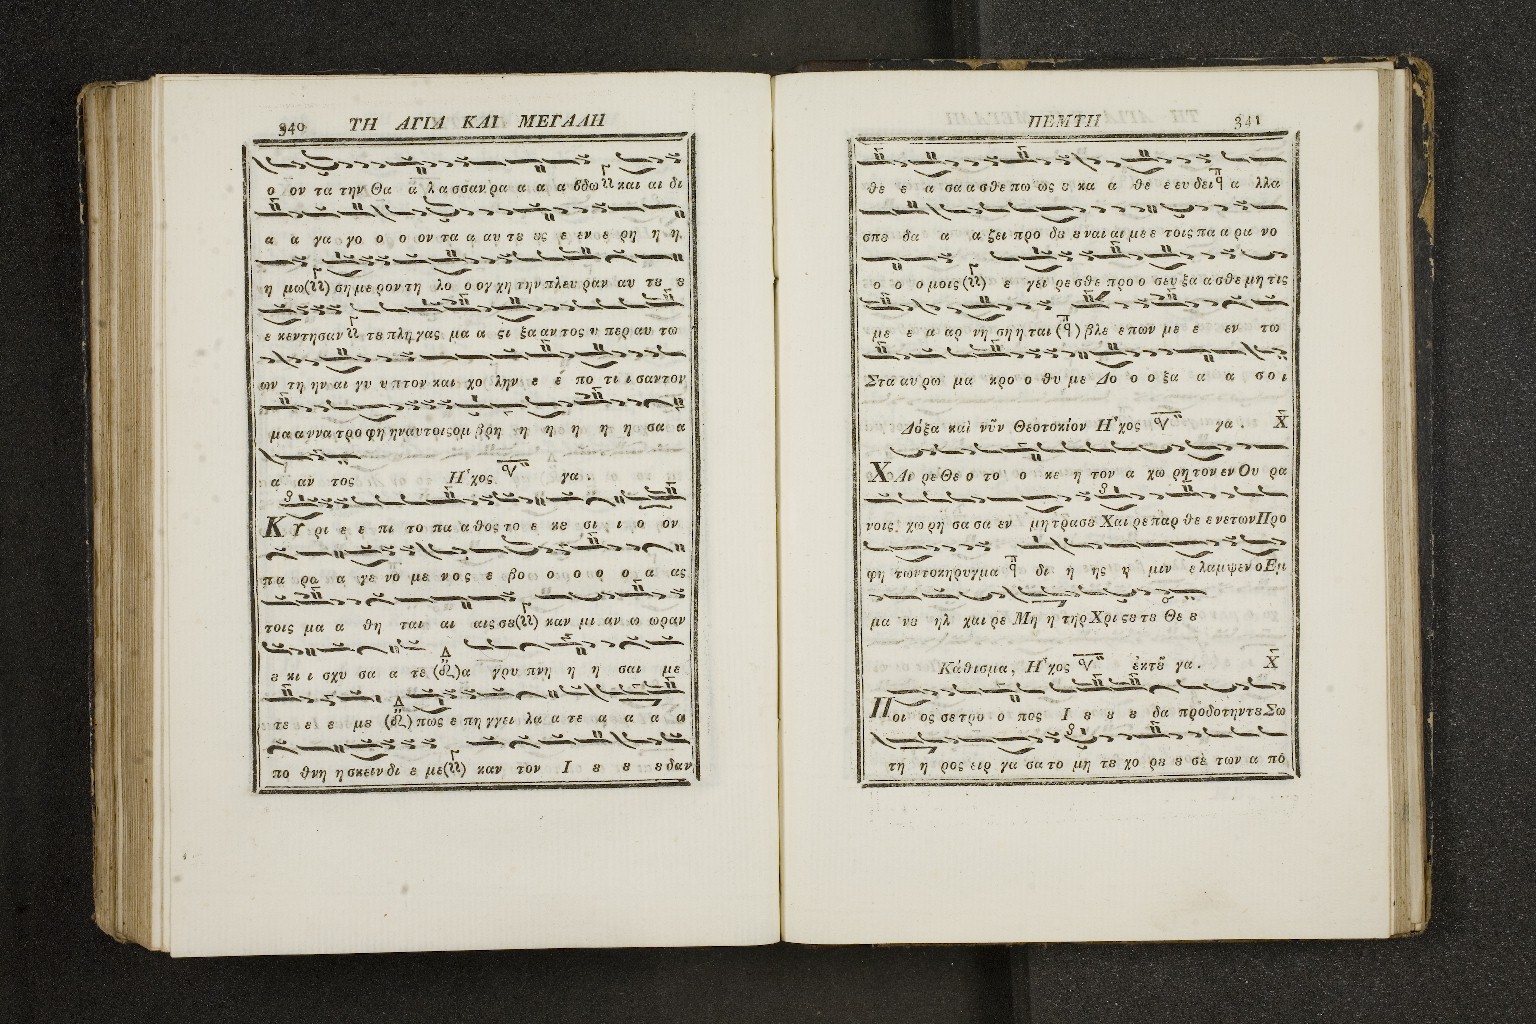 340 ΤΗ ΑΓΙΑ ΚΑΙ ΜΕΓΑΛΗ
ο ον τα την Θα α λα σσαν ρα α α α βδω και αι δι
α α γα γο ο ο ον τα α αυ τȣ ȣς ε εν ε ρη η η
η μω σημερον τη λο ο ογχη την πλευ ραν αυ τȣ ȣ
ε κεντησαν τȣ πληγας μα α ςι ξα αν τος υ περ αυ τω
ων τη ην αι γυ υπτον και χο λην ε ε πο τι ι σαντον
μα αννα τροφη ην αυτοις ομ βρη η η η η η σα α
α αν τος Ηʹχος γα
ΚΥ ρι ε ε πι το πα αθος το ε κȣ σι ι ο ον
πα ρα α γε νο με νος ε βο ο ο ο ο α ας
τοις μα α θη ται αι αις σȣ καν μι αν ω ωραν
ȣκι ι σχυ σα α τε α γρυ πνη η η σαι με
τε ε ε μȣ πως ε πη γγει λα α τε α α α α
πο θνη ησκειν δι ε με καν τον Ι ȣ ȣ ȣδαν
ΠΕΜΤΗ 341
θε ε α σα ασθε πω ως ȣ κα α θε ε ευδει α λλα
σπȣ δα α αζει προ δȣ ȣναι αι με ε τοις πα α ρα νο
ο ο ομοις ε γει ρεσθε προ ο σευξα ασθε μη τις
με ε α αρ νη ση η ται βλε επων με ε εν τω
Στα αυ ρω μα κρο ο θυ με Δο ο ο ξα α α σοι
Δόξα καὶ νῦν Θεοτοκίον Ηʹχος γα.
ΧΑι ρε Θε ο το ο κε η τον α χω ρητον εν Ου ρα
νοις χω ρη σα σα εν μητρα σȣ Χαι ρε παρ θε ενε των Προ
φη των το κηρυγμα δι η ης η μιν ελαμψεν ο Εμ
μα νȣ ηλ χαι ρε Μη η τηρ Χρι ςȣ τȣ Θε ȣ
Κάθισμα, Ηʹχος ἐκτȣ͂ γα.
Ποι ος σε τρο ο πος Ι ȣ ȣ ȣ δα προδοτην τȣ Σω
τη η ρος ειρ γα σατο μη τȣ χο ρȣ ȣ σὲ των α πὸ